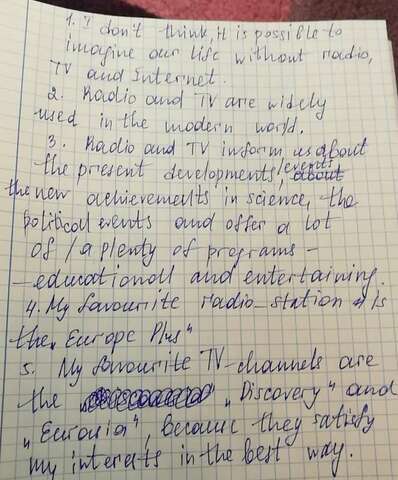 1. I don't think, it is possible to
imagine our life without radio,
TV and Internet.
2. Radio and TV are widely
used in the modern world.
3. Radio and TV inform us about
the present developments,/events
the new achievements in science, the
political events and offer a lot
of / a plenty of programs –
– educationall and entertaining.
4. My favourite radio-station is
the „Europe Plus"
5. My favourite TV-channels are
the „Discovery" and
„Euronia", because they satisfy
my interests in the best way.